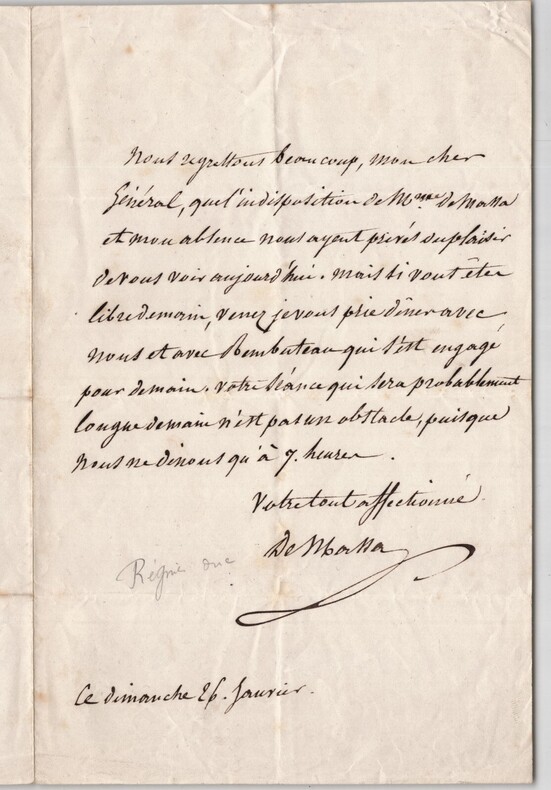 Nous regrettons beaucoup, mon cher
Général, que l'indisposition de Mme de Massa
et mon absence nous ayent privés du plaisir
de vous voir aujourd'hui. Mais si vous êtes
libre demain, venez je vous prie dîner avec
nous et avec Rambuteau qui s'est engagé
pour demain. Votre séance qui sera probablement
longue demain n'est pas un obstacle, puisque
nous ne dinons qu'à 7. heures.
Votre tout affectionné
De Massa
Régnier duc
Ce dimanche 26. Janvier.